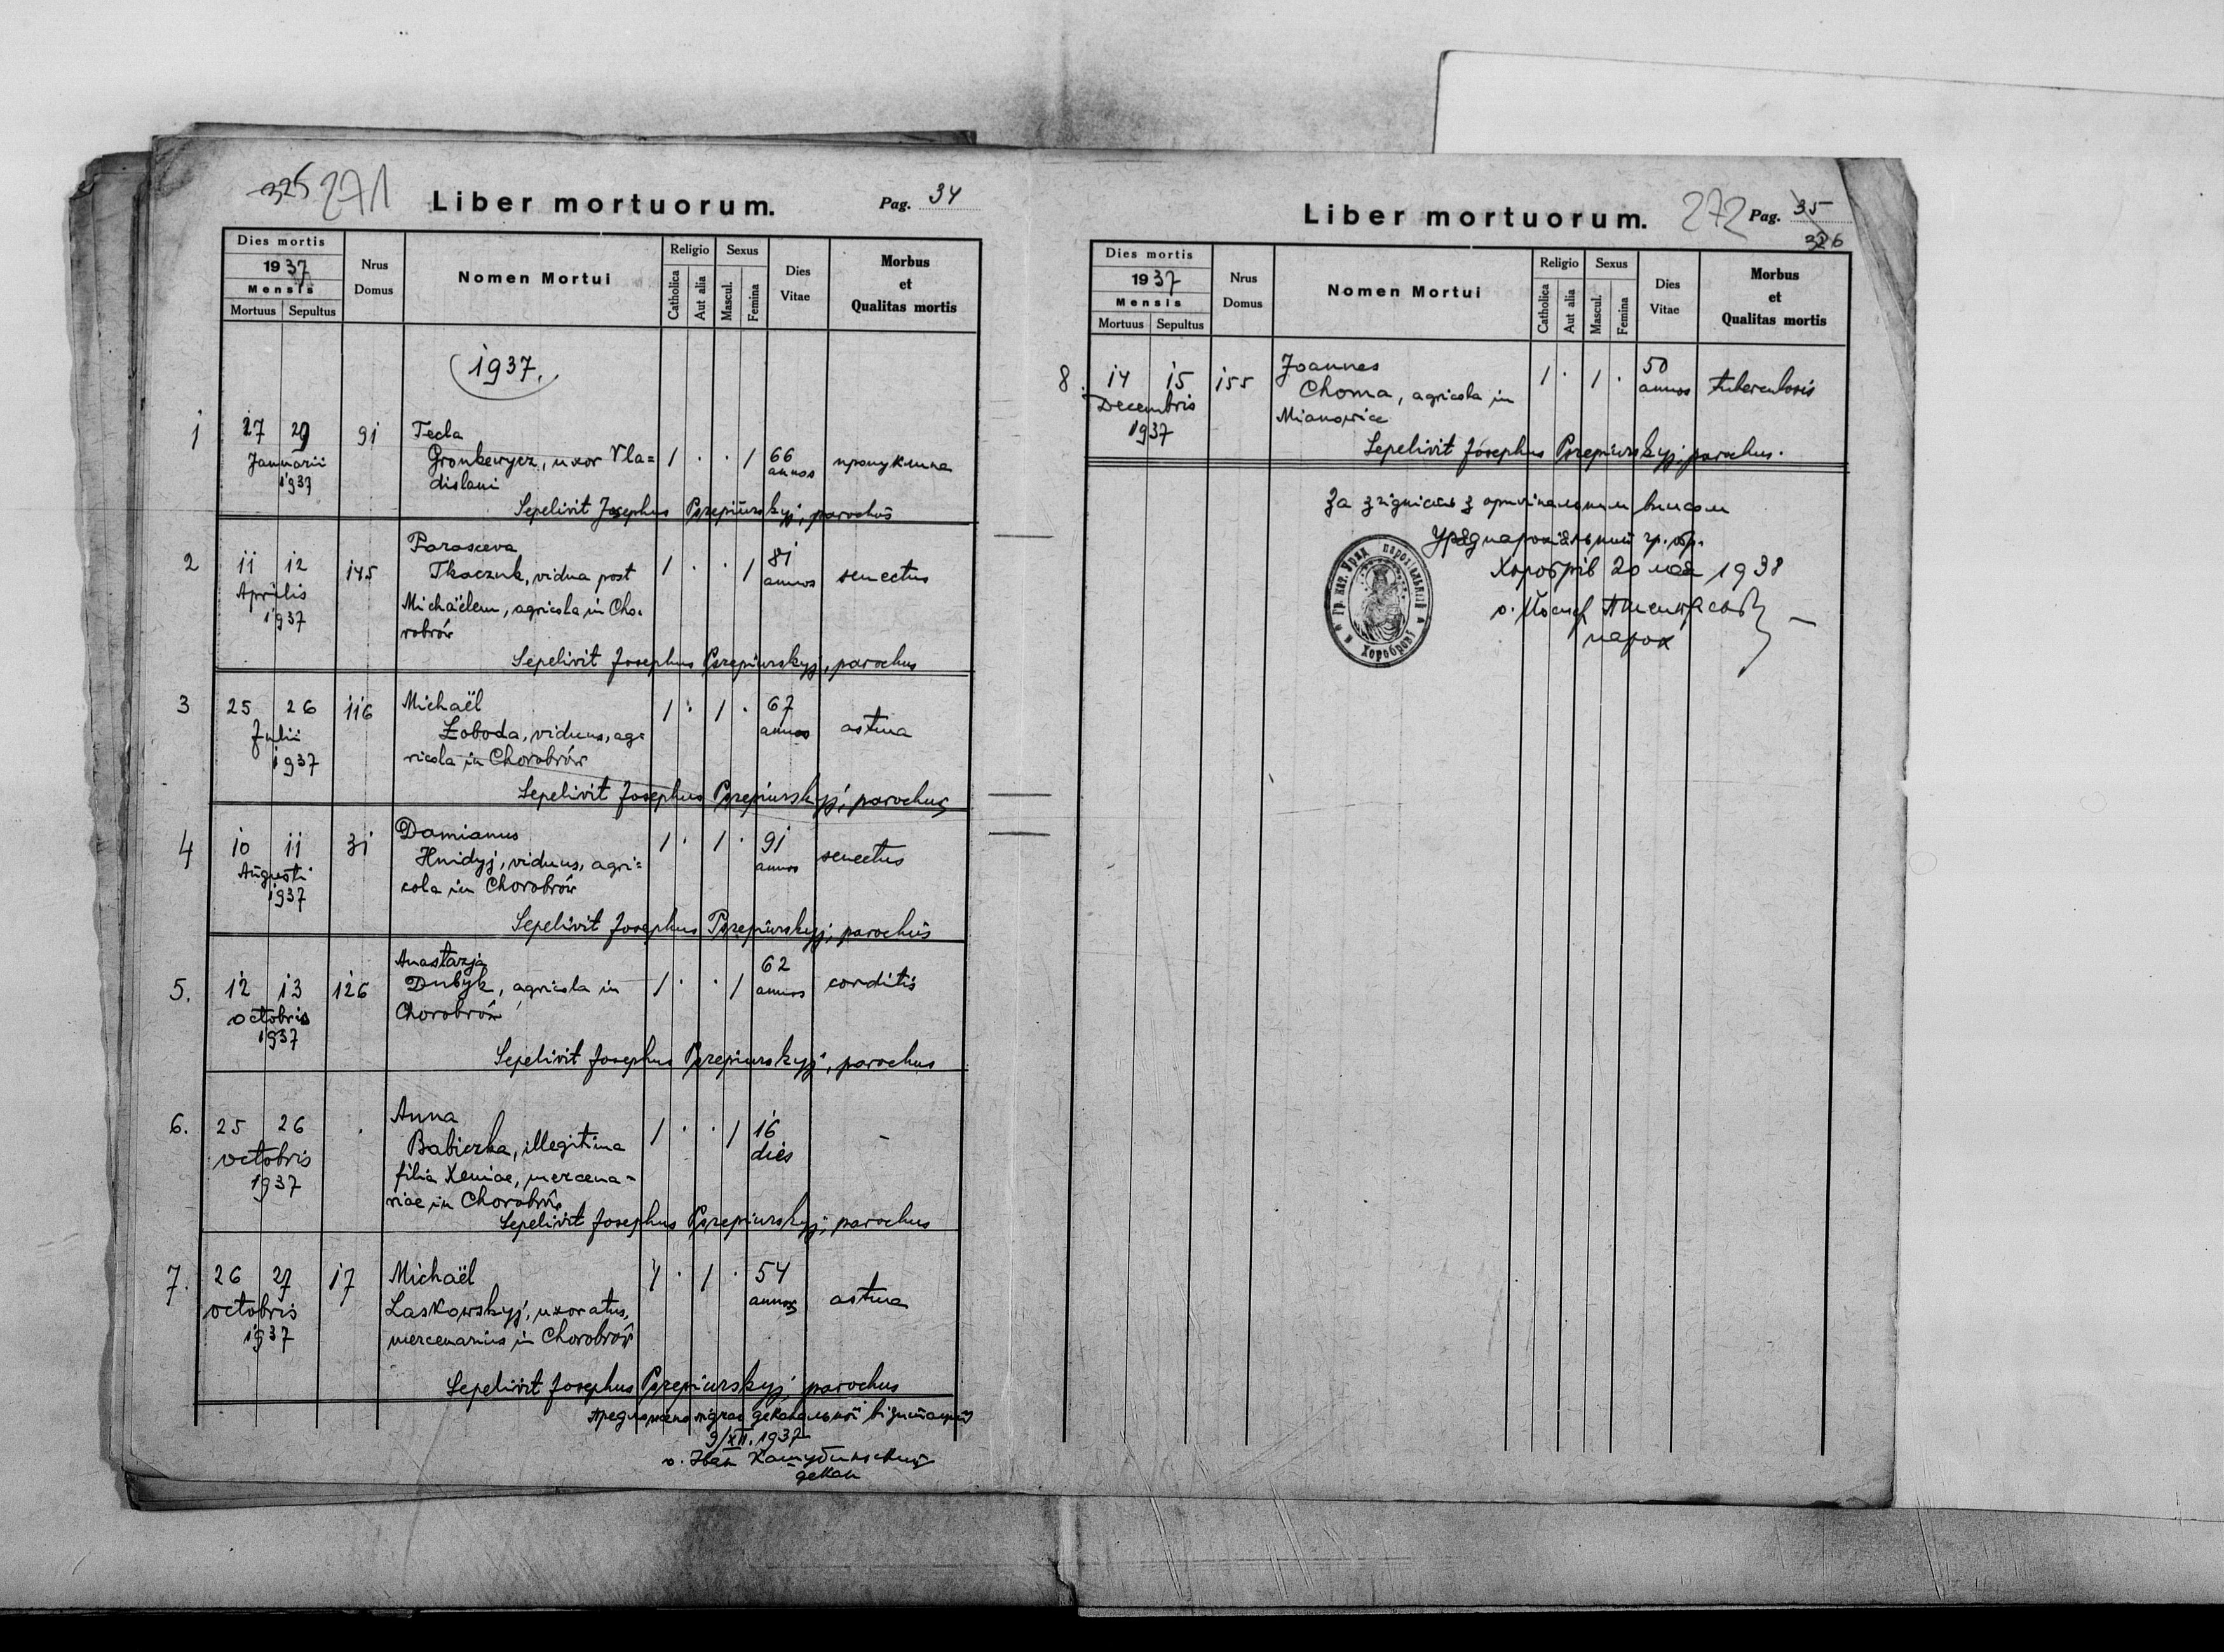 325 271
Liber mortuorum.
Pag. 34
Dies mortis
1937
Mensis
Mortuus Sepultus
Nrus Domus
Nomen Mortui
Religio
Catholica
Aut alia
Sexus
Mascul.
Femina
Dies Vitae
Morbus
et
Qualitas mortis
1937.
1 27 29 91 Tecla 1 . . 1 66
Januarii
1937
uxor Vla=
dislavi
annos
Sepelivit Josephus parochus
2 11 12 145 Parasceva 1 . . 1 81
Aprilis
1937
Tkaczuk, vidua post
annos senectus
Michaëlem, agricola in Cho-
robrów
Sepelivit Josephus parochus
3 25 26 116 Michaël 1 . 1 . 67
Julii
1937
Łoboda, viduus, ag=
annos astma
ricola in Chorobrów
Sepelivit Josephus parochus
4 10 11 31 Damianus 1 . 1 . 91
Augusti
1937
Hnidyj, viduus, agri=
annos senectus
cola in Chorobrów
Sepelivit Josephus parochus
5. 12 13 126 Anastazja 1 . . 1 62
octobris
1937
Dubyk, agricola in
annos corditis
Chorobrów
Sepelivit Josephus parochus
6. 25 26 . Anna 1 . . 1 16
octobris
1937
Babiczka, illegitima
dies -
filia Xeniae, mercena-
riae in Chorobrów
Sepelivit Josephus parochus
7. 26 27 17 Michaël 1 . 1 . 54
octobris
1937
Laskowskyj, uxoratus,
annos astma
mercenarius in Chorobrów
Sepelivit Josephus parochus
деканальної візитації
9/XII. 1937
о. Іван
декан
Liber mortuorum.
272 Pag. 35
326
Dies mortis
1937
Mensis
Mortuus Sepultus
Nrus Domus
Nomen Mortui
Religio
Catholica
Aut alia
Sexus
Mascul.
Femina
Dies Vitae
Morbus
et
Qualitas mortis
8. 14 15 155 Joannes 1 . 1 . 50
Decembris
1937
Choma, agricola in
annos tuberculosis
Mianowice
Sepelivit Josephus parochus.
За згідність з оригінальним
Уряд парохіальний гр. обр.
Хоробрів 20 мая 1938
о. Йосиф
парох
гр. кат. Уряд парохіяльний
Хороброві